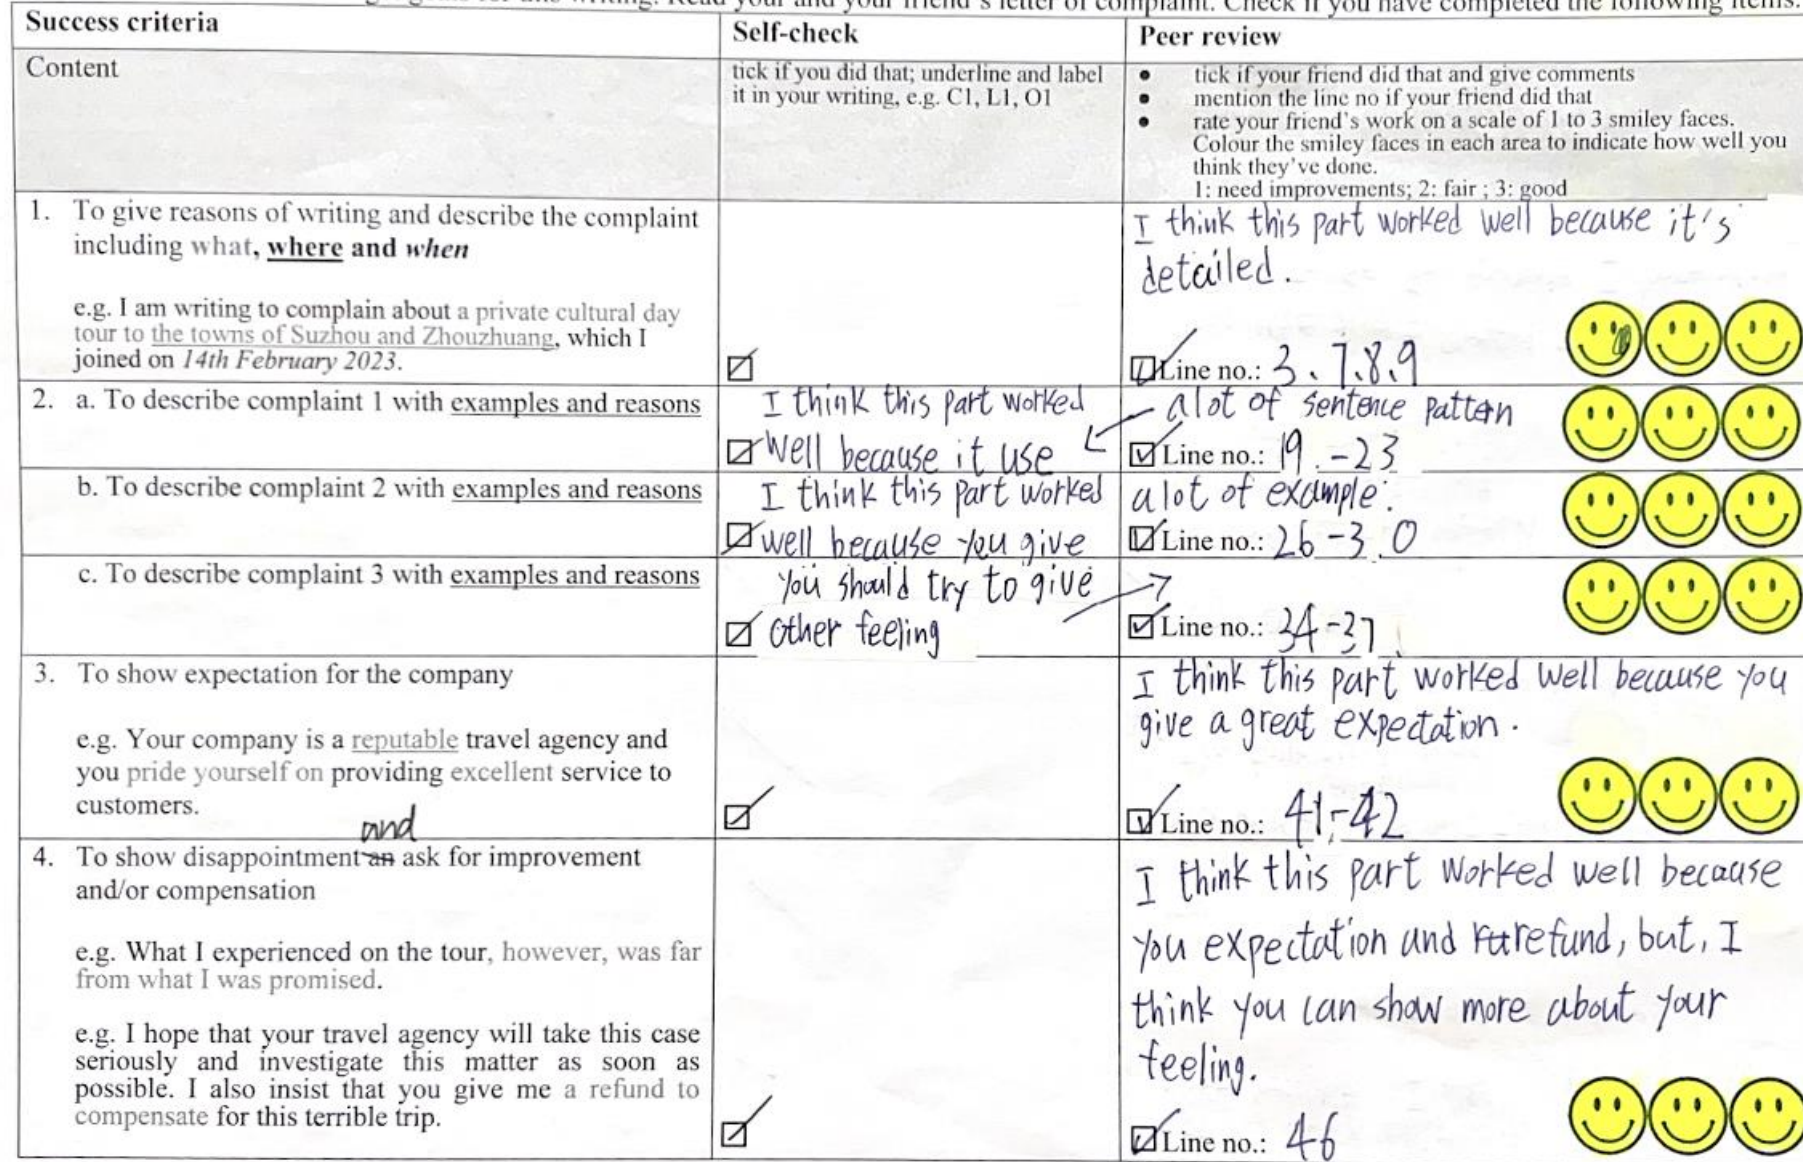 letter of complaint. Check if you have completed the following items.
Success criteria
Self-check
Peer review
Content
tick if you did that; underline and label
it in your writing, e.g. C1, L1, O1
• tick if your friend did that and give comments
• mention the line no if your friend did that
• rate your friend's work on a scale of 1 to 3 smiley faces.
Colour the smiley faces in each area to indicate how well you
think they've done.
1: need improvements; 2: fair ; 3: good
1. To give reasons of writing and describe the complaint
including what, where and when
e.g. I am writing to complain about a private cultural day
tour to the towns of Suzhou and Zhouzhuang, which I
joined on 14th February 2023.
I think this part worked well because it's
detailed.
Line no.: 3、7.8.9
2. a. To describe complaint 1 with examples and reasons
I think this part worked
well because it use
alot of sentence pattern
Line no.: 19 -23
b. To describe complaint 2 with examples and reasons
I think this part worked
well because you give
alot of example.
Line no.: 26-30
c. To describe complaint 3 with examples and reasons
you should try to give
other feeling
Line no.: 34-37
3. To show expectation for the company
e.g. Your company is a reputable travel agency and
you pride yourself on providing excellent service to
customers.
I think this part worked well because you
give a great expectation.
Line no.: 41-42
and
4. To show disappointment an ask for improvement
and/or compensation
e.g. What I experienced on the tour, however, was far
from what I was promised.
e.g. I hope that your travel agency will take this case
seriously and investigate this matter as soon as
possible. I also insist that you give me a refund to
compensate for this terrible trip.
I think this part worked well because
you expectation and refund, but, I
think you can show more about your
feeling.
Line no.: 46